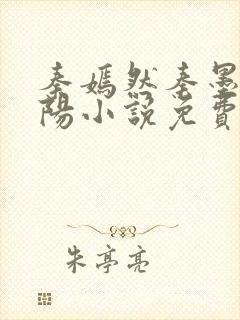 秦嫣然秦墨
陽小說免費
朱亭亮